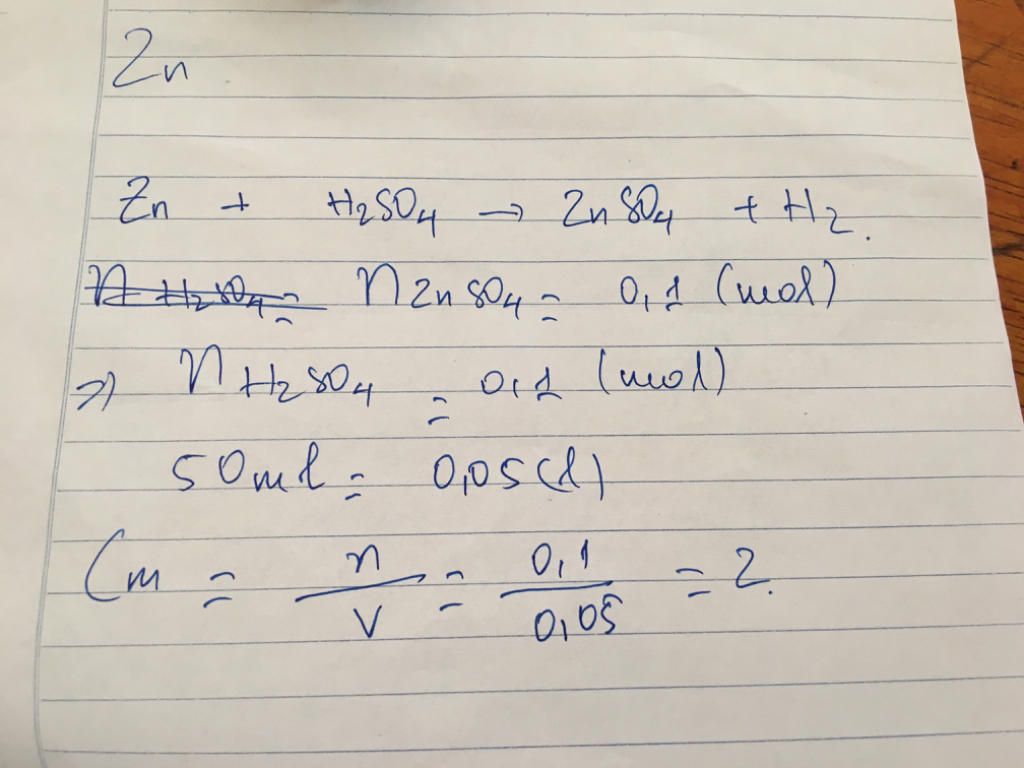 Zn
Zn + H2SO4 → ZnSO4 + H2.
n H2SO4 = n ZnSO4 = 0,1 (mol)
=> n H2SO4 = 0,1 (mol)
50ml = 0,05(l)
Cm = n/V = 0,1/0,05 = 2.